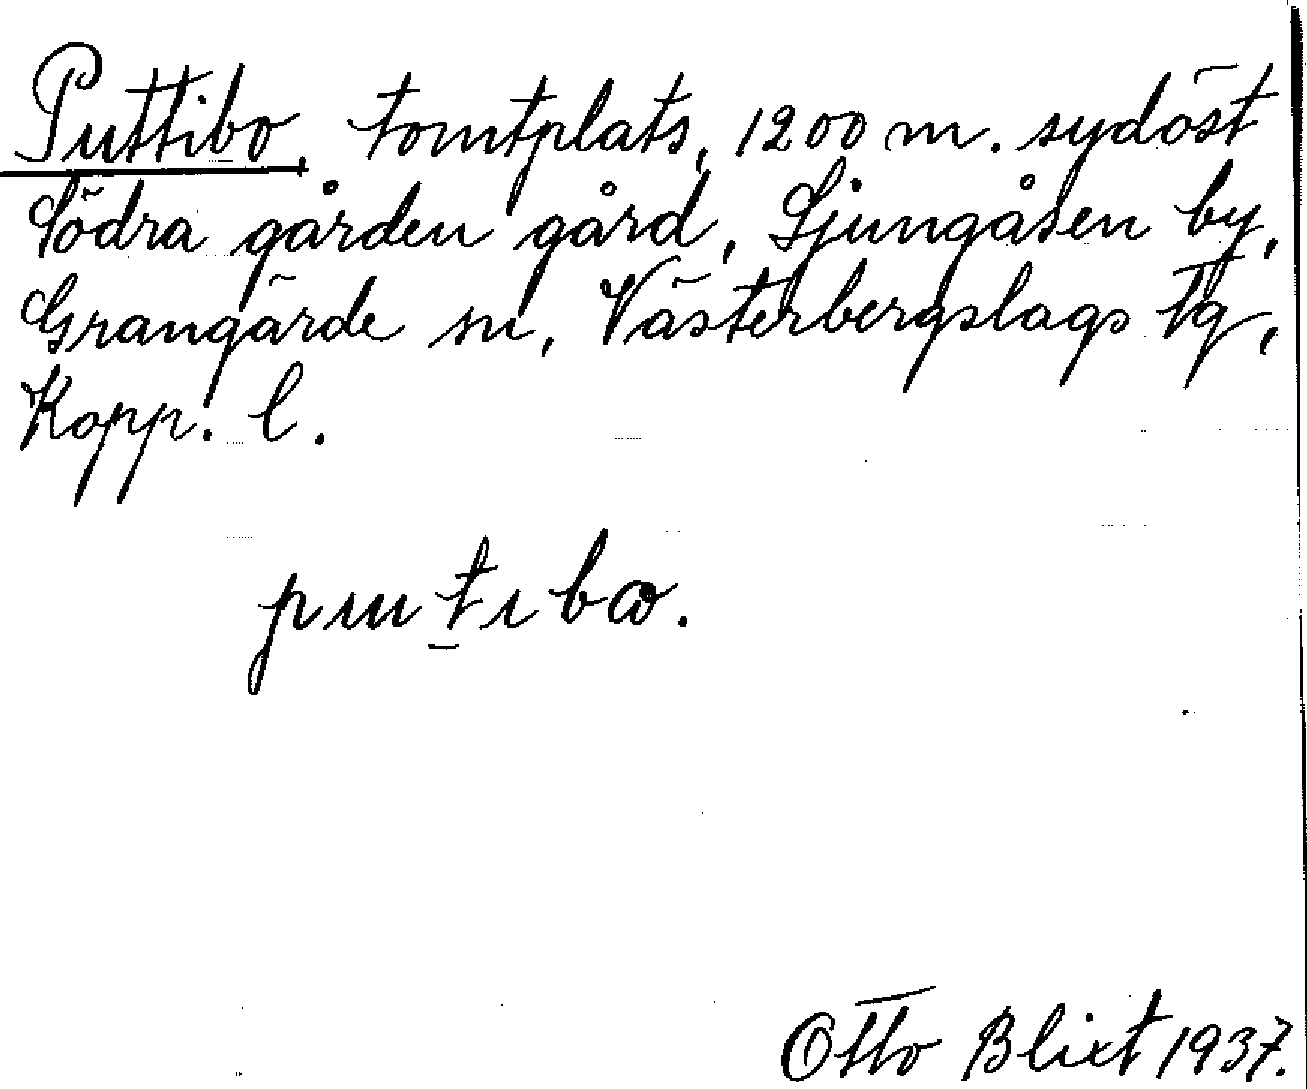 Puttibo, tomtplats, 1200 m. sydöst
Södra gården gård, Ljungåsen by,
Grangärde sn, Västerbergslags tg,
Kopp. l.
Otto Blixt 1937.